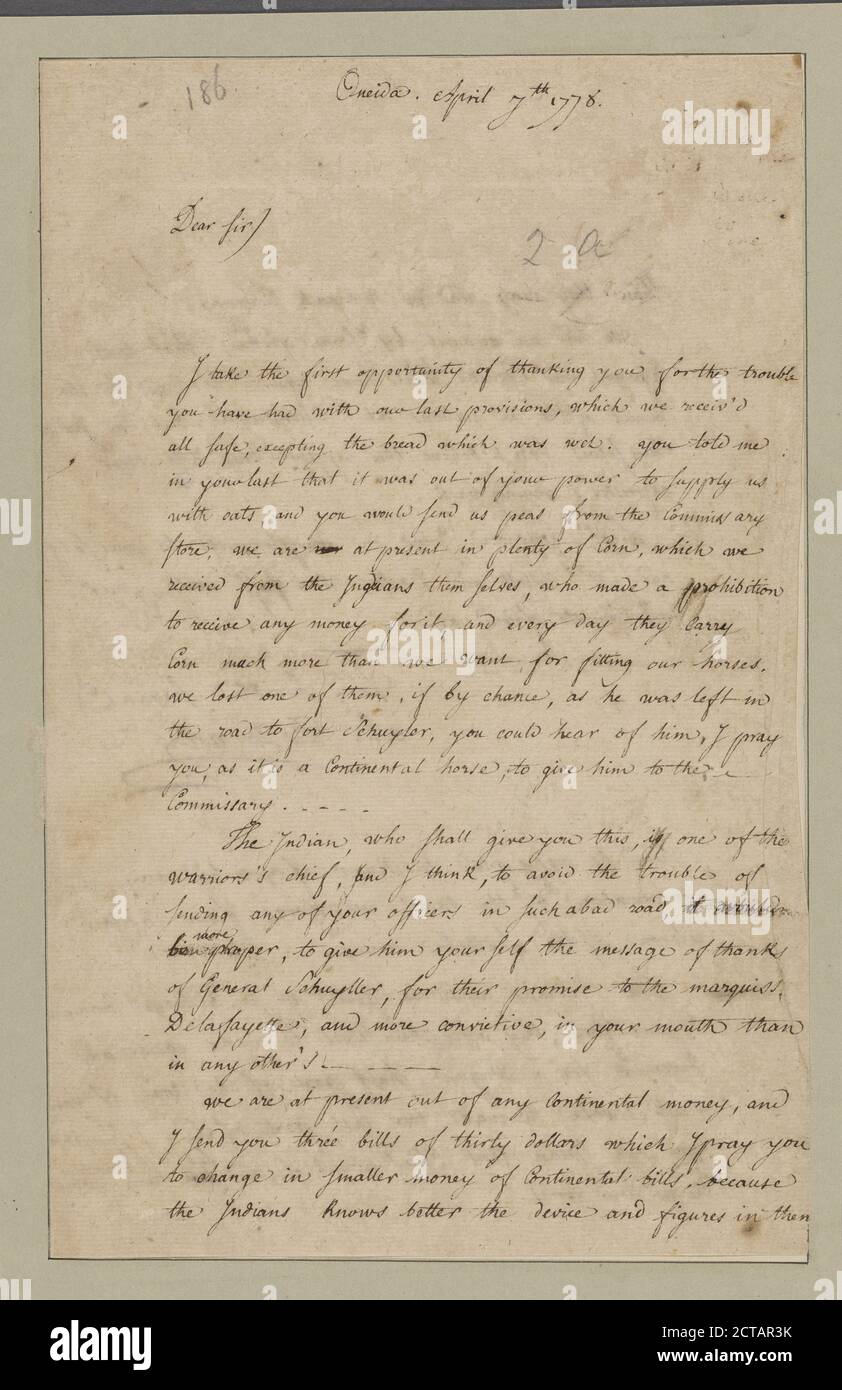 186
Oneida. April 7th 1778.
Dear Sir)
2 a
I take the first opportunity of thanking you for the trouble
you have had with our last provisions, which we receiv'd
all safe, excepting the bread which was wet. you told me
in your last that it was out of your power to supply us
with oats and you would send us peas from the Commissary
store, we are at present in plenty of Corn, which we
received from the Indians them selves, who made a prohibition
to receive any money for it, and every day they Carry
Corn much more than we want for fitting our horses.
we lost one of them, if by chance, as he was left in
the road to fort Schuyler, you could hear of him, I pray
you, as it is a Continental horse, to give him to the
Commissary. - - - -
The Indian, who shall give you this, is one of the
warriors's chief, and I think, to avoid the trouble of
sending any of your officers in such a bad road, it would
more
proper, to give him your self the message of thanks
of General Schuyller, for their promise to the marquiss.
Delafayette, and more convictive, in your mouth than
in any other's - - - -
we are at present out of any Continental money, and
I send you three bills of thirty dollars which I pray you
to change in smaller money of Continental bills, because
the Indians Knows better the device and figures in them
a
alamy
alamy
alamy
alamy
Image ID: 2CTAR3K
www.alamy.com